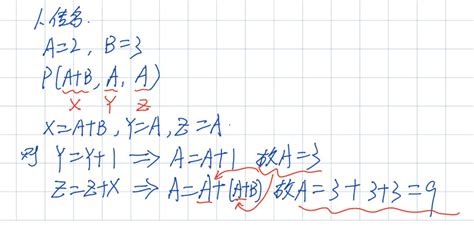 1、传名.
A=2, B=3
P(A+B, A, A)
X Y Z
X=A+B, Y=A, Z=A.
对 Y=Y+1 ⇒ A=A+1 故A=3
Z=Z+X ⇒ A=A+(A+B) 故A=3+3+3=9